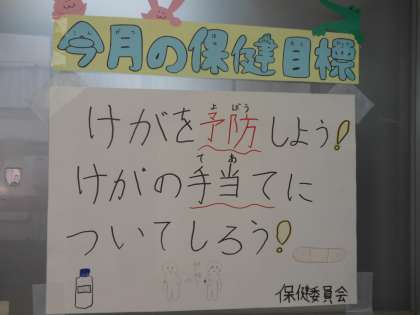 今月の保健目標
けがを予防しよう!
けがの手当てに
ついてしろう!
保健委員会